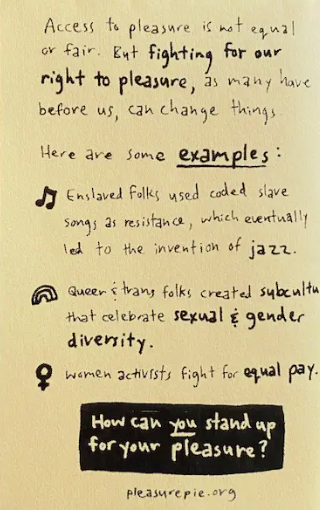 Access to pleasure is not equal
or fair. But fighting for our
right to pleasure, as many have
before us, can change things.
Here are some examples:
Enslaved folks used coded slave
songs as resistance, which eventually
led to the invention of jazz.
Queer & trans folks created subcultu
that celebrate sexual & gender
diversity.
Women activists fight for equal pay.
How can you stand up
for your pleasure?
pleasurepie.org